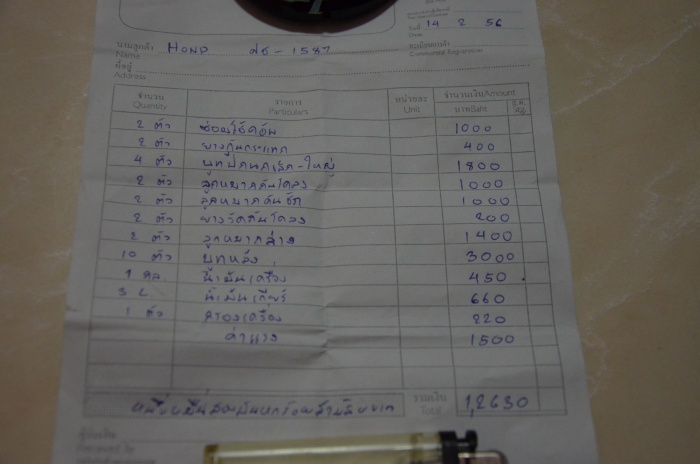 วันที่ 14 2 56
Date
นามลูกค้า HOND ศธ-1587
Name
ที่อยู่
Address
Commercial Registration
จำนวน รายการ หน่วยละ จำนวนเงิน/Amount
Quantity Particulars Unit บาท/Baht
2 ตัว ซ่อมโช้คอัพ 1000
2 ตัว ยางกันกระแทก 400
4 ตัว บูทปีกนกเล็ก-ใหญ่ 1800
2 ตัว ลูกหมากคันโคลง 1000
2 ตัว ลูกหมากคันชัก 1000
2 ตัว ยางรัดกันโคลง 200
2 ตัว ลูกหมากล่าง 1400
10 ตัว บูทหลัง 3000
1 น้ำมันเครื่อง 450
3 L น้ำมันเกียร์ 660
1 ตัว กรองเครื่อง 220
ค่าแรง 1500
หนึ่งหมื่นสองพันหกร้อยสามสิบบาท รวมเงิน 12630
Total